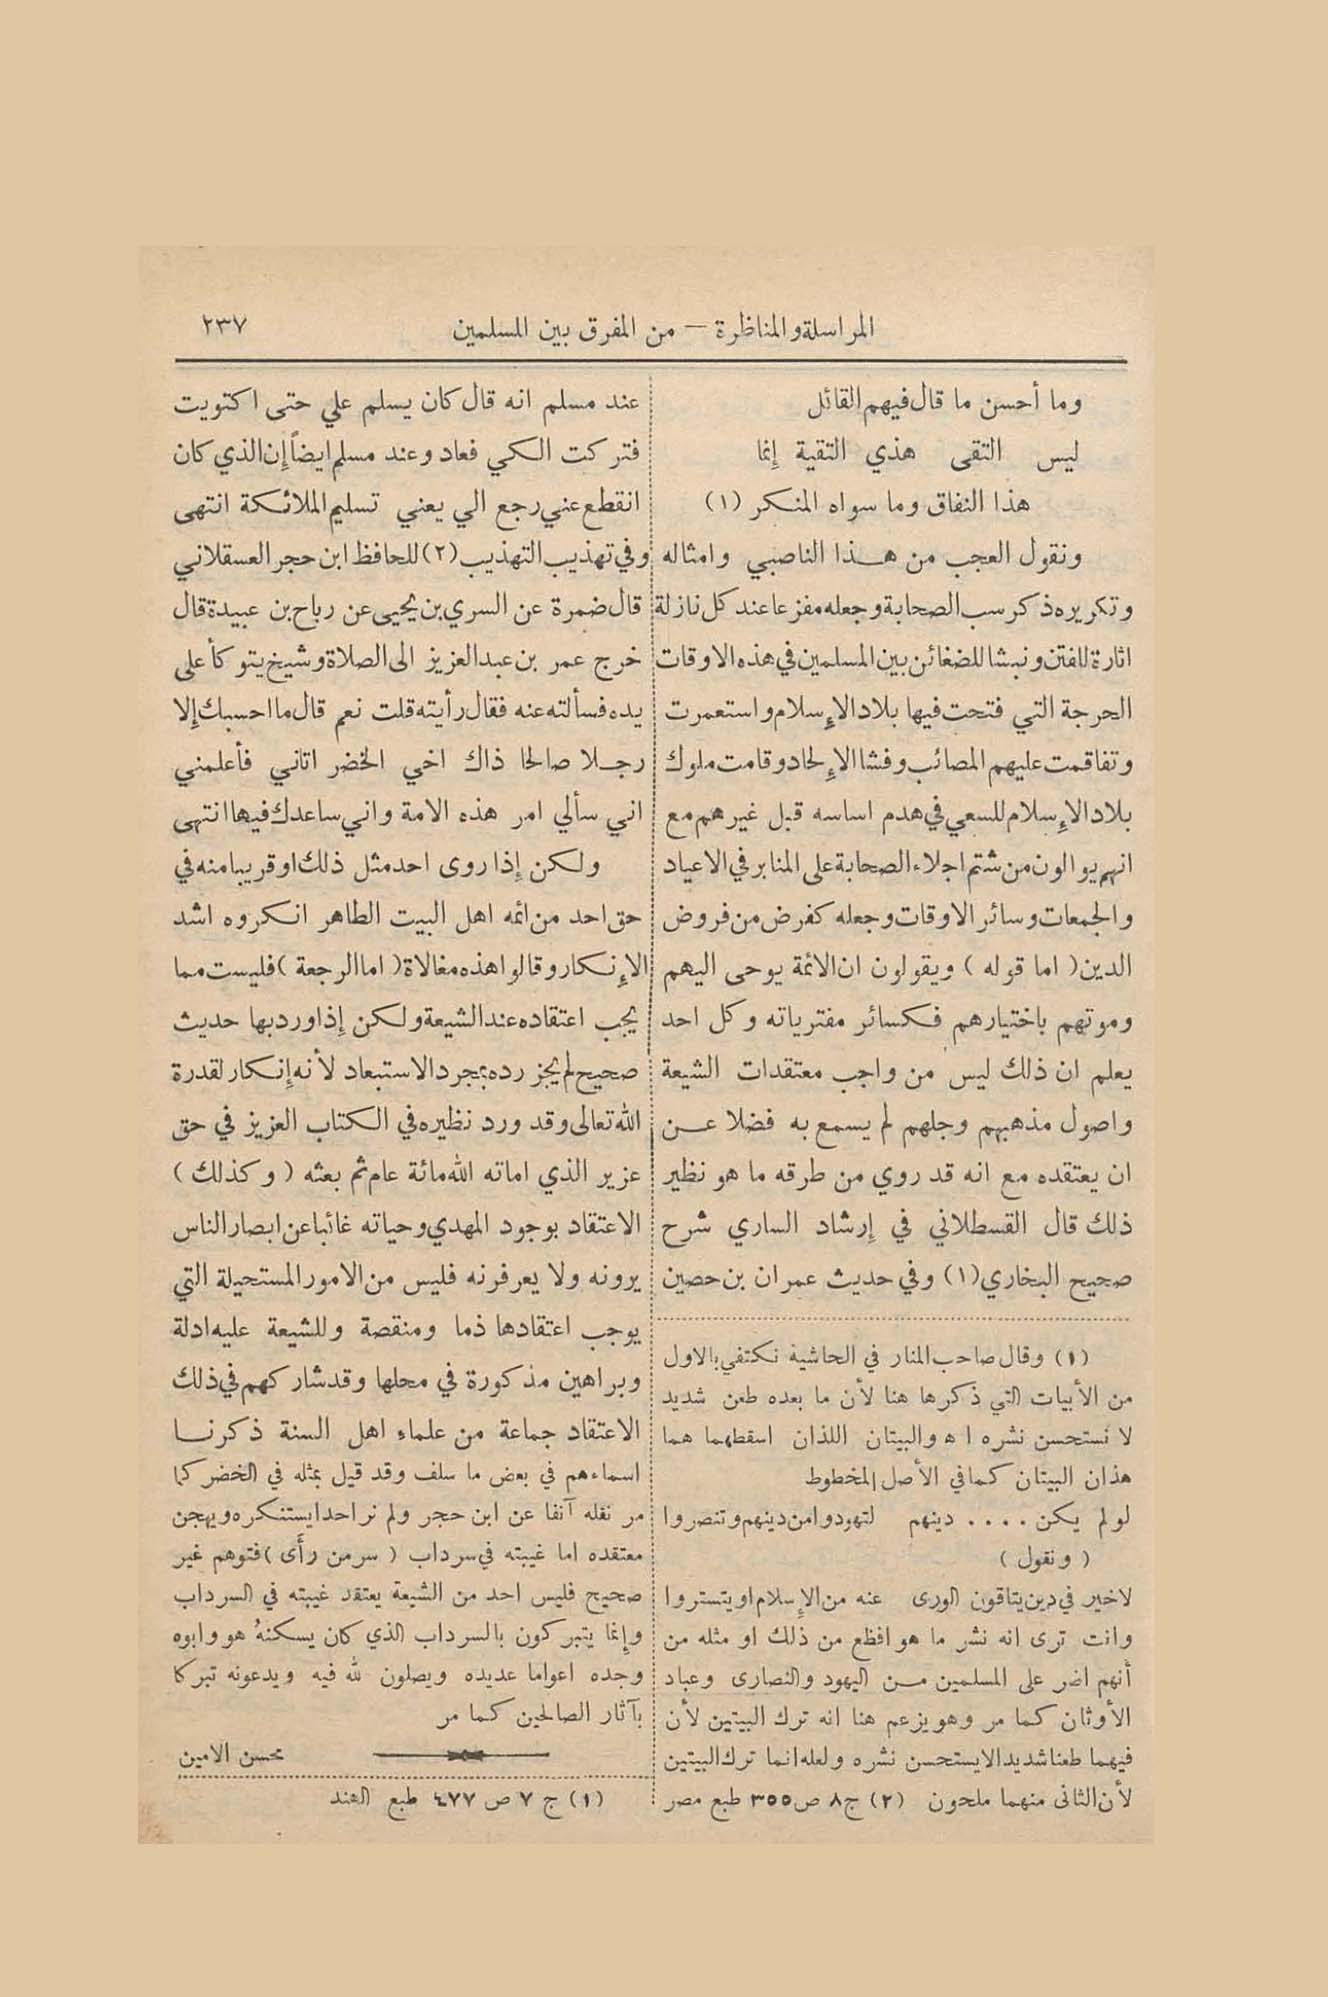 المراسلة والمناظرة — من المفرق بين المسلمين ٢٣٧
وما أحسن ما قال فيهم القائل
ليس التقى هذي التقية إنما
هذا النفاق وما سواه المنكر (١)
ونقول العجب من هذا الناصبي وامثاله
وتكريره ذكر سب الصحابة وجعله مفزعا عند كل نازلة
اثارة للفتن ونبشا للضغائن بين المسلمين في هذه الاوقات
الحرجة التي فتحت فيها بلاد الإسلام واستعمرت
وتفاقمت عليهم المصائب وفشا الإلحاد وقامت ملوك
بلاد الإسلام للسعي في هدم اساسه قبل غيرهم مع
انهم يوالون من شتم اجلاء الصحابة على المنابر في الاعياد
والجمعات وسائر الاوقات وجعله كفرض من فروض
الدين (اما قوله) ويقولون ان الائمة يوحى اليهم
وموتهم باختيارهم فكسائر مفترياته وكل احد
يعلم ان ذلك ليس من واجب معتقدات الشيعة
واصول مذهبهم وجلهم لم يسمع به فضلا عن
ان يعتقده مع انه قد روي من طرقه ما هو نظير
ذلك قال القسطلاني في إرشاد الساري شرح
صحيح البخاري (١) وفي حديث عمران بن حصين
(١) وقال صاحب المنار في الحاشية نكتفي بالاول
من الأبيات التي ذكرها هنا لأن ما بعده طعن شديد
لا نستحسن نشره اه والبيتان اللذان اسقطهما هما
هذان البيتان كما في الأصل المخطوط
لولم يكن .... دينهم لتهودوا من دينهم وتنصروا
(ونقول)
لاخير في دين يتاقون الورى عنه من الإسلام او يتستروا
وانت ترى انه نشر ما هو افظع من ذلك او مثله من
أنهم اضر على المسلمين من اليهود والنصارى وعباد
الأوثان كما مر وهو يزعم هنا انه ترك البيتين لأن
فيهما طعنا شديدا لا يستحسن نشره ولعله انما ترك البيتين
لأن الثانى منهما ملحون (٢) ج ٨ ص ٣٥٥ طبع مصر
عند مسلم انه قال كان يسلم علي حتى اكتويت
فتركت الكي فعاد وعند مسلم ايضاً إن الذي كان
انقطع عني رجع الي يعني تسليم الملائكة انتهى
وفي تهذيب التهذيب (٢) للحافظ ابن حجر العسقلاني
قال ضمرة عن السري بن يحيى عن رباح بن عبيدة قال
خرج عمر بن عبد العزيز الى الصلاة وشيخ يتوكأ على
يده فسألته عنه فقال رأيته قلت نعم قال ما احسبك إلا
رجلا صالحا ذاك اخي الخضر اتاني فأعلمني
اني سألي امر هذه الامة واني ساعدك فيها انتهى
ولكن إذا روى احد مثل ذلك او قريبا منه في
حق احد من ائمه اهل البيت الطاهر انكروه اشد
الإنكار وقالوا هذه مغالاة (اما الرجعة) فليست مما
يجب اعتقاده عند الشيعة ولكن إذا ورد بها حديث
صحيح لم يجز رده بمجرد الاستبعاد لأنه إنكار لقدرة
الله تعالى وقد ورد نظيره في الكتاب العزيز في حق
عزير الذي اماته الله مائة عام ثم بعثه (وكذلك)
الاعتقاد بوجود المهدي وحياته غائبا عن ابصار الناس
يرونه ولا يعرفرنه فليس من الامور المستحيلة التي
يوجب اعتقادها ذما ومنقصة وللشيعة عليه ادلة
وبراهين مذكورة في محلها وقد شاركهم في ذلك
الاعتقاد جماعة من علماء اهل السنة ذكرنا
اسماءهم في بعض ما سلف وقد قيل بمثله في الخضر كما
مر نقله آنفا عن ابن حجر ولم نر احدا يستنكره ويهجن
معتقده اما غيبته في سرداب (سر من رأى) فتوهم غير
صحيح فليس احد من الشيعة يعتقد غيبته في السرداب
وإنما يتبركون بالسرداب الذي كان يسكنهُ هو وابوه
وجده اعواما عديده ويصلون لله فيه ويدعونه تبركا
بآثار الصالحين كما مر
محسن الامين
(١) ج ٧ ص ٤٧٧ طبع الهند